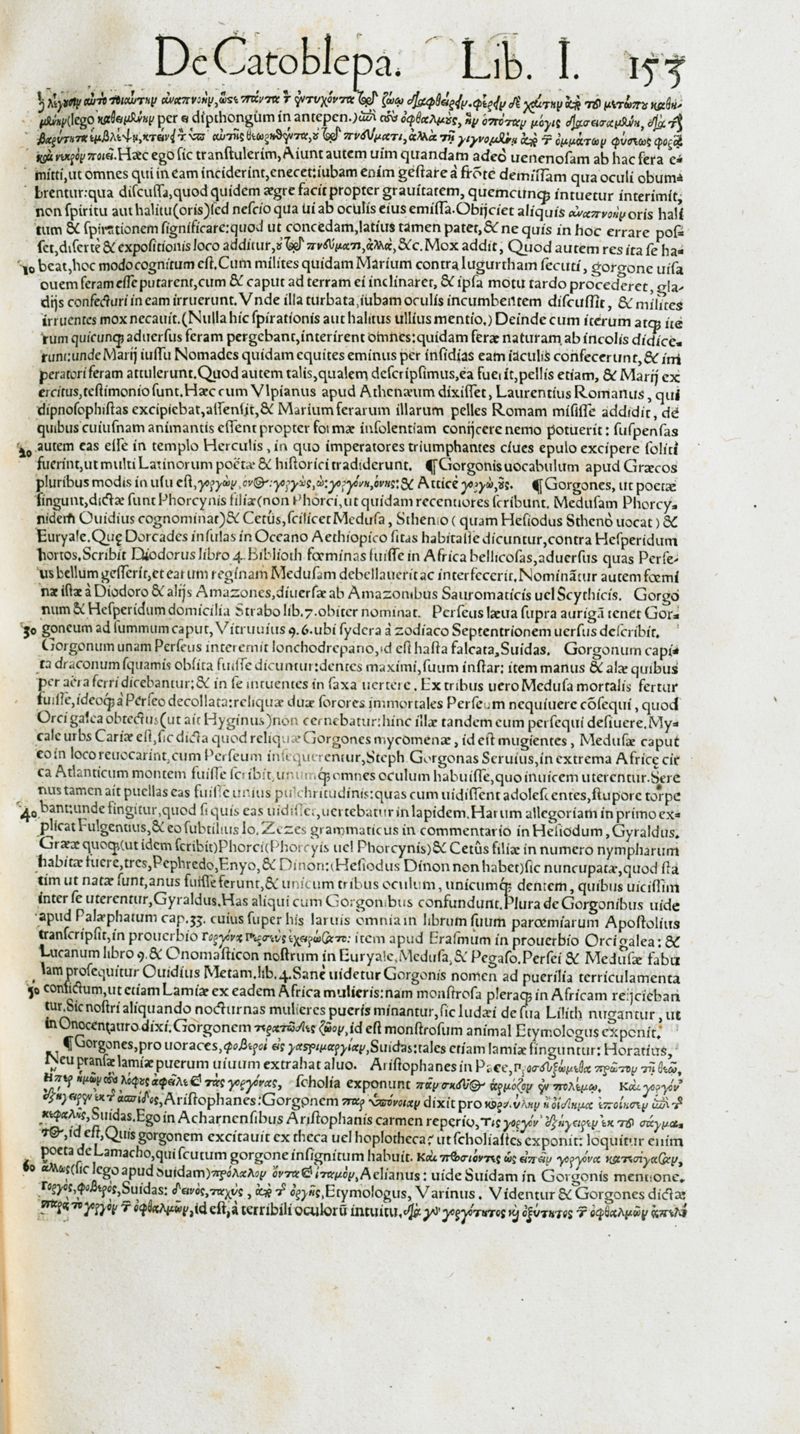 De Catoblepa. Lib. I. 153
mitti, ut omnes qui in eam inciderint, enecet: iubam enim gestare à frõte demissam qua oculi obum⸗
brentur: qua discussa, quod quidem ægre facit propter grauitatem, quemcunq; intuetur interimit,
non spiritu aut halitu (oris) sed nescio qua ui ab oculis eius emissa. Obijciet aliquis ἀναπνοὴν oris hali
tum & spirationem significare: quod ut concedam, latius tamen patet, & ne quis in hoc errare pos⸗
set, disertè & expositionis loco additur, οὐ τῷ πνεύματι, ἀλλὰ, &c. Mox addit, Quod autem res ita se ha⸗
10 beat, hoc modo cognitum est. Cum milites quidam Marium contra Iugurtham secuti, gorgone uisa
ouem feram esse putarent, cum & caput ad terram ei inclinaret, & ipsa motu tardo procederet, gla⸗
dijs confecturi in eam irruerunt. Vnde illa turbata, iubam oculis incumbentem discussit, & milites
irruentes mox necauit. (Nulla hic spirationis aut halitus ullius mentio.) Deinde cum iterum atq; ite
rum quicunq; aduersus feram pergebant, interirent omnes: quidam feræ naturam ab incolis didice⸗
runt: unde Marij iussu Nomades quidam equites eminus per insidias eam iaculis confecerunt, & im
peratori feram attulerunt. Quod autem talis, qualem descripsimus, ea fuerit, pellis etiam, & Marij ex
ercitus, testimonio sunt. Hæc cum Vlpianus apud Athenæum dixisset, Laurentius Romanus, qui
dipnosophistas excipiebat, assensit, & Marium ferarum illarum pelles Romam misisse addidit, de
quibus cuiusnam animantis essent propter formæ insolentiam conijcere nemo potuerit: suspensas
20 autem eas esse in templo Herculis, in quo imperatores triumphantes ciues epulo excipere soliti
fuerint, ut multi Latinorum poëtæ & historici tradiderunt. ¶ Gorgonis uocabulum apud Græcos
pluribus modis in usu est, γοργὼν, όν⊕: γοργὼς, ῶ: γοργόνη, όνης: & Atticè γοργὼ, ῦς. ¶ Gorgones, ut poetæ
fingunt, dictæ sunt Phorcynis filiæ (non Phorci, ut quidam recentiores scribunt. Medusam Phorcy⸗
nidem Ouidius cognominat) & Cetûs, scilicet Medusa, Sthenio (quam Hesiodus Sthenò uocat) &
Euryale. Quę Dorcades insulas in Oceano Aethiopico sitas habitasse dicuntur, contra Hesperidum
hortos. Scribit Diodorus libro 4. Biblioth fœminas fuisse in Africa bellicosas, aduersus quas Perse⸗
us bellum gesserit, et earum reginam Medusam debellauerit ac interfecerit. Nominãtur autem fœmi
næ istæ à Diodoro & alijs Amazones, diuersæ ab Amazonibus Sauromaticis uel Scythicis. Gorgo
num & Hesperidum domicilia Strabo lib. 7. obiter nominat. Perseus læua supra aurigã tenet Gor⸗
30 goneum ad summum caput, Vitruuius 9. 6. ubi sydera à zodiaco Septentrionem uersus describit.
Gorgonum unam Perseus interemit lonchodrepano, id est hasta falcata, Suidas. Gorgonum capi⸗
ta draconum squamis obsita fuisse dicuntur: dentes maximi, suum instar: item manus & alæ quibus
per aëra ferri dicebantur: & in se intuentes in saxa uertere. Ex tribus uero Medusa mortalis fertur
fuisse, ideoq; à Perseo decollata: reliquæ duæ sorores immortales Perseum nequiuere cõsequi, quod
Orci galea obtectus (ut ait Hyginus) non cernebatur: hinc illæ tandem eum persequi desiuere. My⸗
cale urbs Cariæ est, sic dicta quod reliquæ Gorgones mycomenæ, id est mugientes, Medusæ caput
eo in loco reuocarint, cum Perseum insequerentur, Steph. Gorgonas Seruius, in extrema Africe cir
ca Atlanticum montem fuisse scribit, unumq; omnes oculum habuisse, quo inuicem uterentur. Sere
nus tamen ait puellas eas fuisse unius pulchritudinis: quas cum uidissent adolescentes, stupore torpe
40 bant: unde fingitur, quod si quis eas uidisset, uertebatur in lapidem. Harum allegoriam in primo ex⸗
plicat Fulgentius, & eo subtilius Io. Zezes grammaticus in commentario in Hesiodum, Gyraldus.
Grææ quoq; (ut idem scribit) Phorci (Phorcyis uel Phorcynis) & Cetûs filiæ in numero nympharum
habitæ fuere, tres, Pephredo, Enyo, & Dinon: (Hesiodus Dinon non habet) sic nuncupatæ, quod sta
tim ut natæ sunt, anus fuisse ferunt, & unicum tribus oculum, unicumq; dentem, quibus uicissim
inter se uterentur, Gyraldus. Has aliqui cum Gorgonibus confundunt. Plura de Gorgonibus uide
apud Palæphatum cap. 33. cuius super his laruis omnia in librum suum parœmiarum Apostolius
transcripsit, in prouerbio item apud Erasmum in prouerbio Orci galea: &
Lucanum libro 9. & Onomasticon nostrum in Euryale, Medusa, & Pegaso. Persei & Medusæ fabu
lam prosequitur Ouidius Metam. lib. 4. Sanè uidetur Gorgonis nomen ad puerilia terriculamenta
50 confictum, ut etiam Lamiæ ex eadem Africa mulieris: nam monstrosa pleraq; in Africam reijcieban
tur. Sic nostri aliquando nocturnas mulieres pueris minantur, sic Iudæi de sua Lilith nugantur, ut
in Onocentauro dixi. Gorgonem τερατῶδες ζῶον, id est monstrosum animal Etymologus exponit.
¶ Gorgones, pro uoraces, φοβεροὶ εἰς γαστριμαργίαν, Suidas: tales etiam lamiæ finguntur: Horatius,
Neu pransæ lamiæ puerum uiuum extrahat aluo. Aristophanes in Pace,
scholia exponunt
Aristophanes: Gorgonem παρ' ὑπόνοιαν dixit pro
Suidas. Ego in Acharnensibus Aristophanis carmen reperio,
id est, Quis gorgonem excitauit ex theca uel hoplotheca? ut scholiastes exponit: loquitur enim
poeta de Lamacho, qui scutum gorgone insignitum habuit.
60 ἄλλως (sic lego apud Suidam) Aelianus: uide Suidam in Gorgonis mentione.
Γοργὸς, φοβερὸς, Suidas: δεινὸς, ταχὺς, Etymologus, Varinus. Videntur & Gorgones dictæ
id est, à terribili oculorũ intuitu,